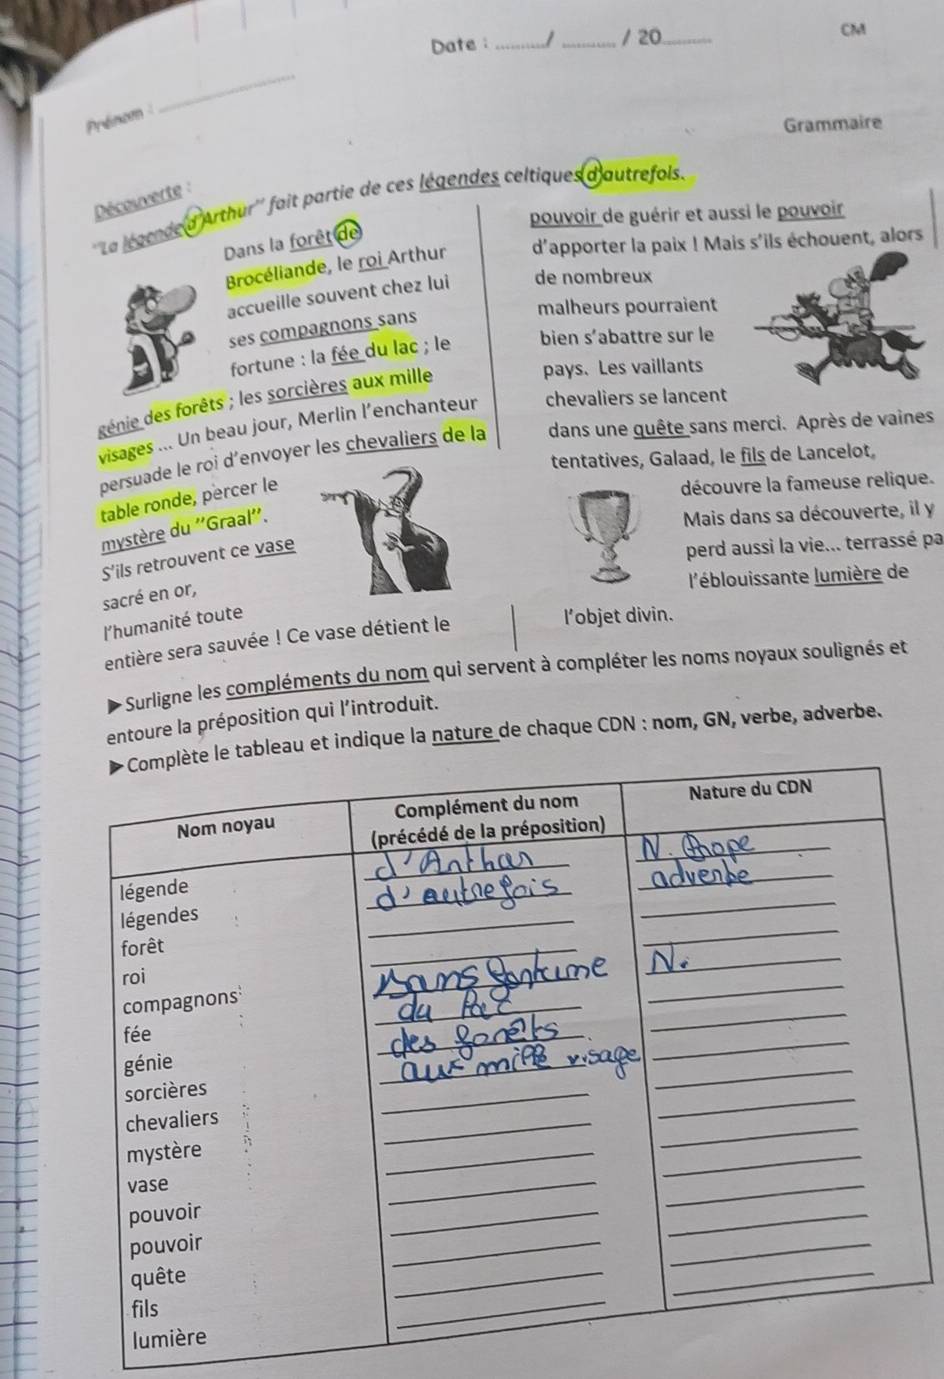 Date : ......../ ........... / 20..........
CM
Prénom :
Grammaire
Découverte :
"La légende d'Arthur" fait partie de ces légendes celtiques d'autrefois.
Dans la forêt de
Brocéliande, le roi Arthur
accueille souvent chez lui
ses compagnons sans
fortune : la fée du lac ; le
génie des forêts ; les sorcières aux mille
visages ... Un beau jour, Merlin l'enchanteur
persuade le roi d'envoyer les chevaliers de la
table ronde, percer le
mystère du "Graal".
S'ils retrouvent ce vase
sacré en or,
l'humanité toute
entière sera sauvée ! Ce vase détient le
pouvoir de guérir et aussi le pouvoir
d'apporter la paix ! Mais s'ils échouent, alors
de nombreux
malheurs pourraient
bien s'abattre sur le
pays. Les vaillants
chevaliers se lancent
dans une quête sans merci. Après de vaines
tentatives, Galaad, le fils de Lancelot,
découvre la fameuse relique.
Mais dans sa découverte, il y
perd aussi la vie... terrassé pa
l'éblouissante lumière de
l'objet divin.
▶ Surligne les compléments du nom qui servent à compléter les noms noyaux soulignés et
entoure la préposition qui l'introduit.
▶ Complète le tableau et indique la nature de chaque CDN : nom, GN, verbe, adverbe.
Nom noyau
Complément du nom
(précédé de la préposition)
Nature du CDN
légende d'Arthur
légendes d'autrefois adverbe
forêt
roi
compagnons sans fortune N.
fée du lac
génie des forêts
sorcières aux mille visage
chevaliers
mystère
vase
pouvoir
pouvoir
quête
fils
lumière